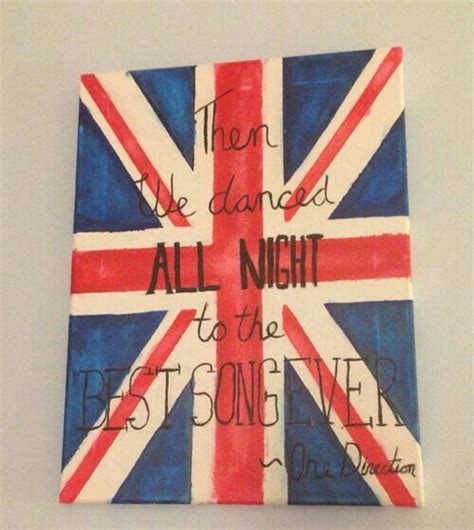 Then
We danced
ALL NIGHT
to the
BEST SONG EVER
~One Direction